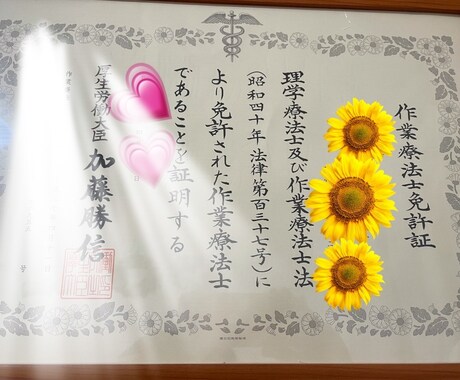 作業療法士免許証
理学療法士及び作業療法士法
(昭和四十年法律第百三十七号)に
より免許された作業療法士
であることを証明する
厚生労働大臣 加藤勝信